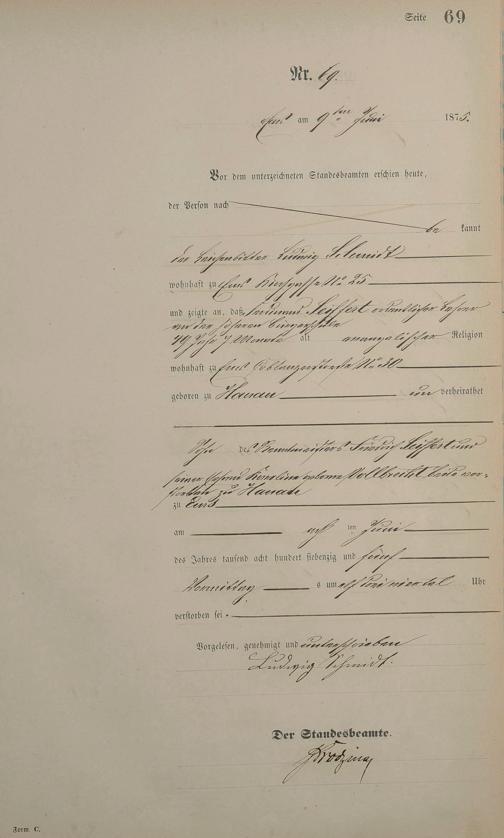 Seite 69
Nr. 69.
Ems am 9ten Juni 1875.
Vor dem unterzeichneten Standesbeamten erschien heute,
der Person nach
be kannt
der Leichenbitter Ludwig Schmidt
wohnhaft zu Ems Kirchgasse No 25
und zeigte an, daß Ferdinand Seiffert ordentlicher Lehrer
an der höheren Bürgerschule
49 Jahr 7 Monate alt evangelischer Religion
wohnhaft zu Ems Coblenzerstraße No 40
geboren zu Hanau un verheirathet
Sohn des Friedrich Seiffert und
seiner Karoline geborene Vollbrecht beide ver-
storben zu Hanau
zu Ems
am acht ten Juni
des Jahres tausend acht hundert siebenzig und fünf
Vormittag s um Uhr
verstorben sei.
Vorgelesen, genehmigt und unterschrieben
Ludwig Schmidt.
Der Standesbeamte.
Form. C.